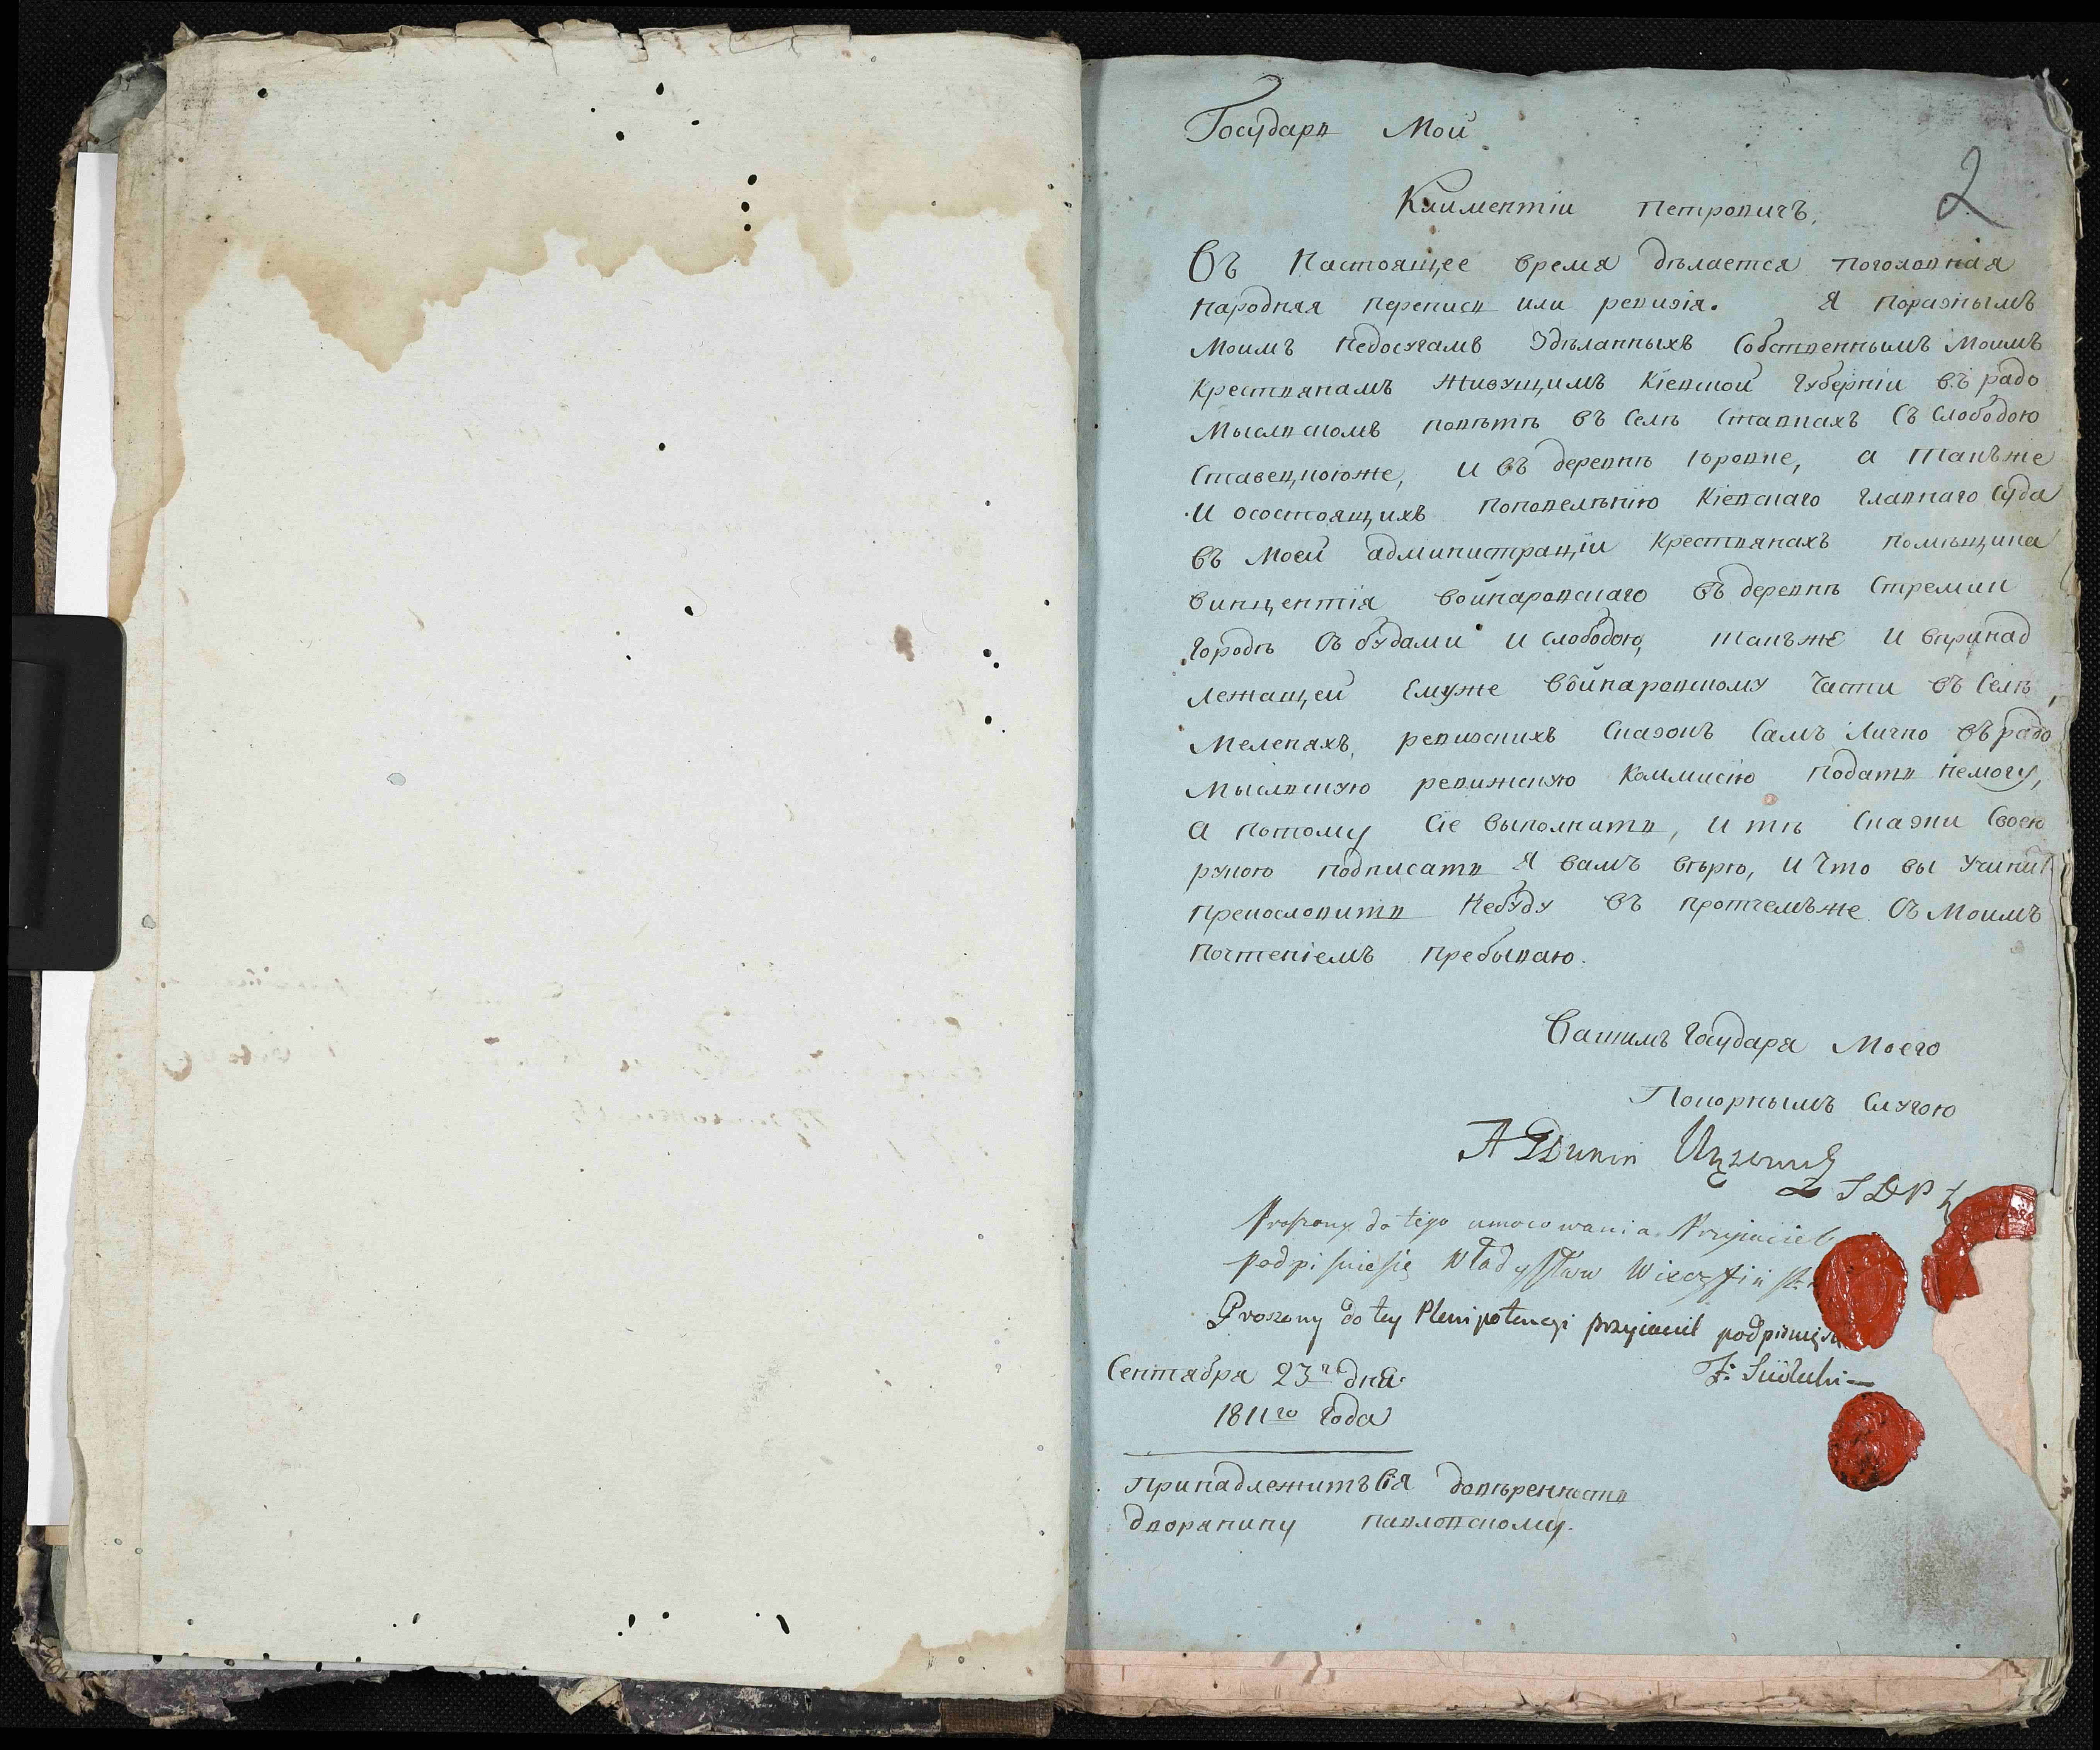 2
Государь Мой
Климентій Петровичъ,
Въ Настоящее время дѣлается поголовная
народняя перепись или ревизія. Я поразнымъ
Моимъ недосугамъ Здѣланныхъ Собственнымъ Моимъ
Крестьянамъ Живущимъ Кіевской Губерніи въ радо
Мысльскомъ повѣтѣ въ Селѣ Ставкахъ Съ Слободою
Ставецкоюже, и въ деревнѣ Юровке, а такъже
И осостоящихъ поповелѣнію Кіевскаго Главнаго Суда
въ Моей администраціи Крестьянахъ помѣщика
Винцентія Войнаровскаго въ деревнѣ Стреми
Городѣ Съ будами и слободою, такъже и впринад
лежащей Емуже Войнаровскому Части въ Селѣ
Меленяхъ, ревизскихъ Сказокъ Самъ Лично въ радо
Мысльскую ревижскую Коммисію подать немогу,
а потому Сіе выполнить, и тѣ Сказки Своею
рукою подписать Я вамъ вѣрю, и Что вы Учини
прекословить Небуду въ протчемъже Съ Моимъ
почтеніемъ пребываю.
Вашимъ Государя Моего
Покорнымъ Слугою
A Dunin
Proszony do tego umocowania Przyjaciel
podpisuiesię Władysław
Proszony do tey Plenipotencyi przyiaciel podpisuię
Сентября 23го дня
1811го Года
Принадлежитъ Сія довѣренность
дворянину павловскому.